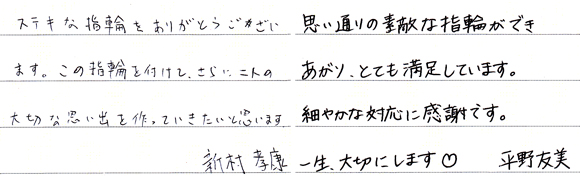 ステキな指輪をありがとうございい
ます。この指輪を付けて、さらに二人の
大切な思い出を作っていきたいと思います
新村 孝康
思い通りの素敵な指輪ができ
あがり、とても満足しています。
細やかな対応に感謝です。
一生、大切にします♡ 平野友美